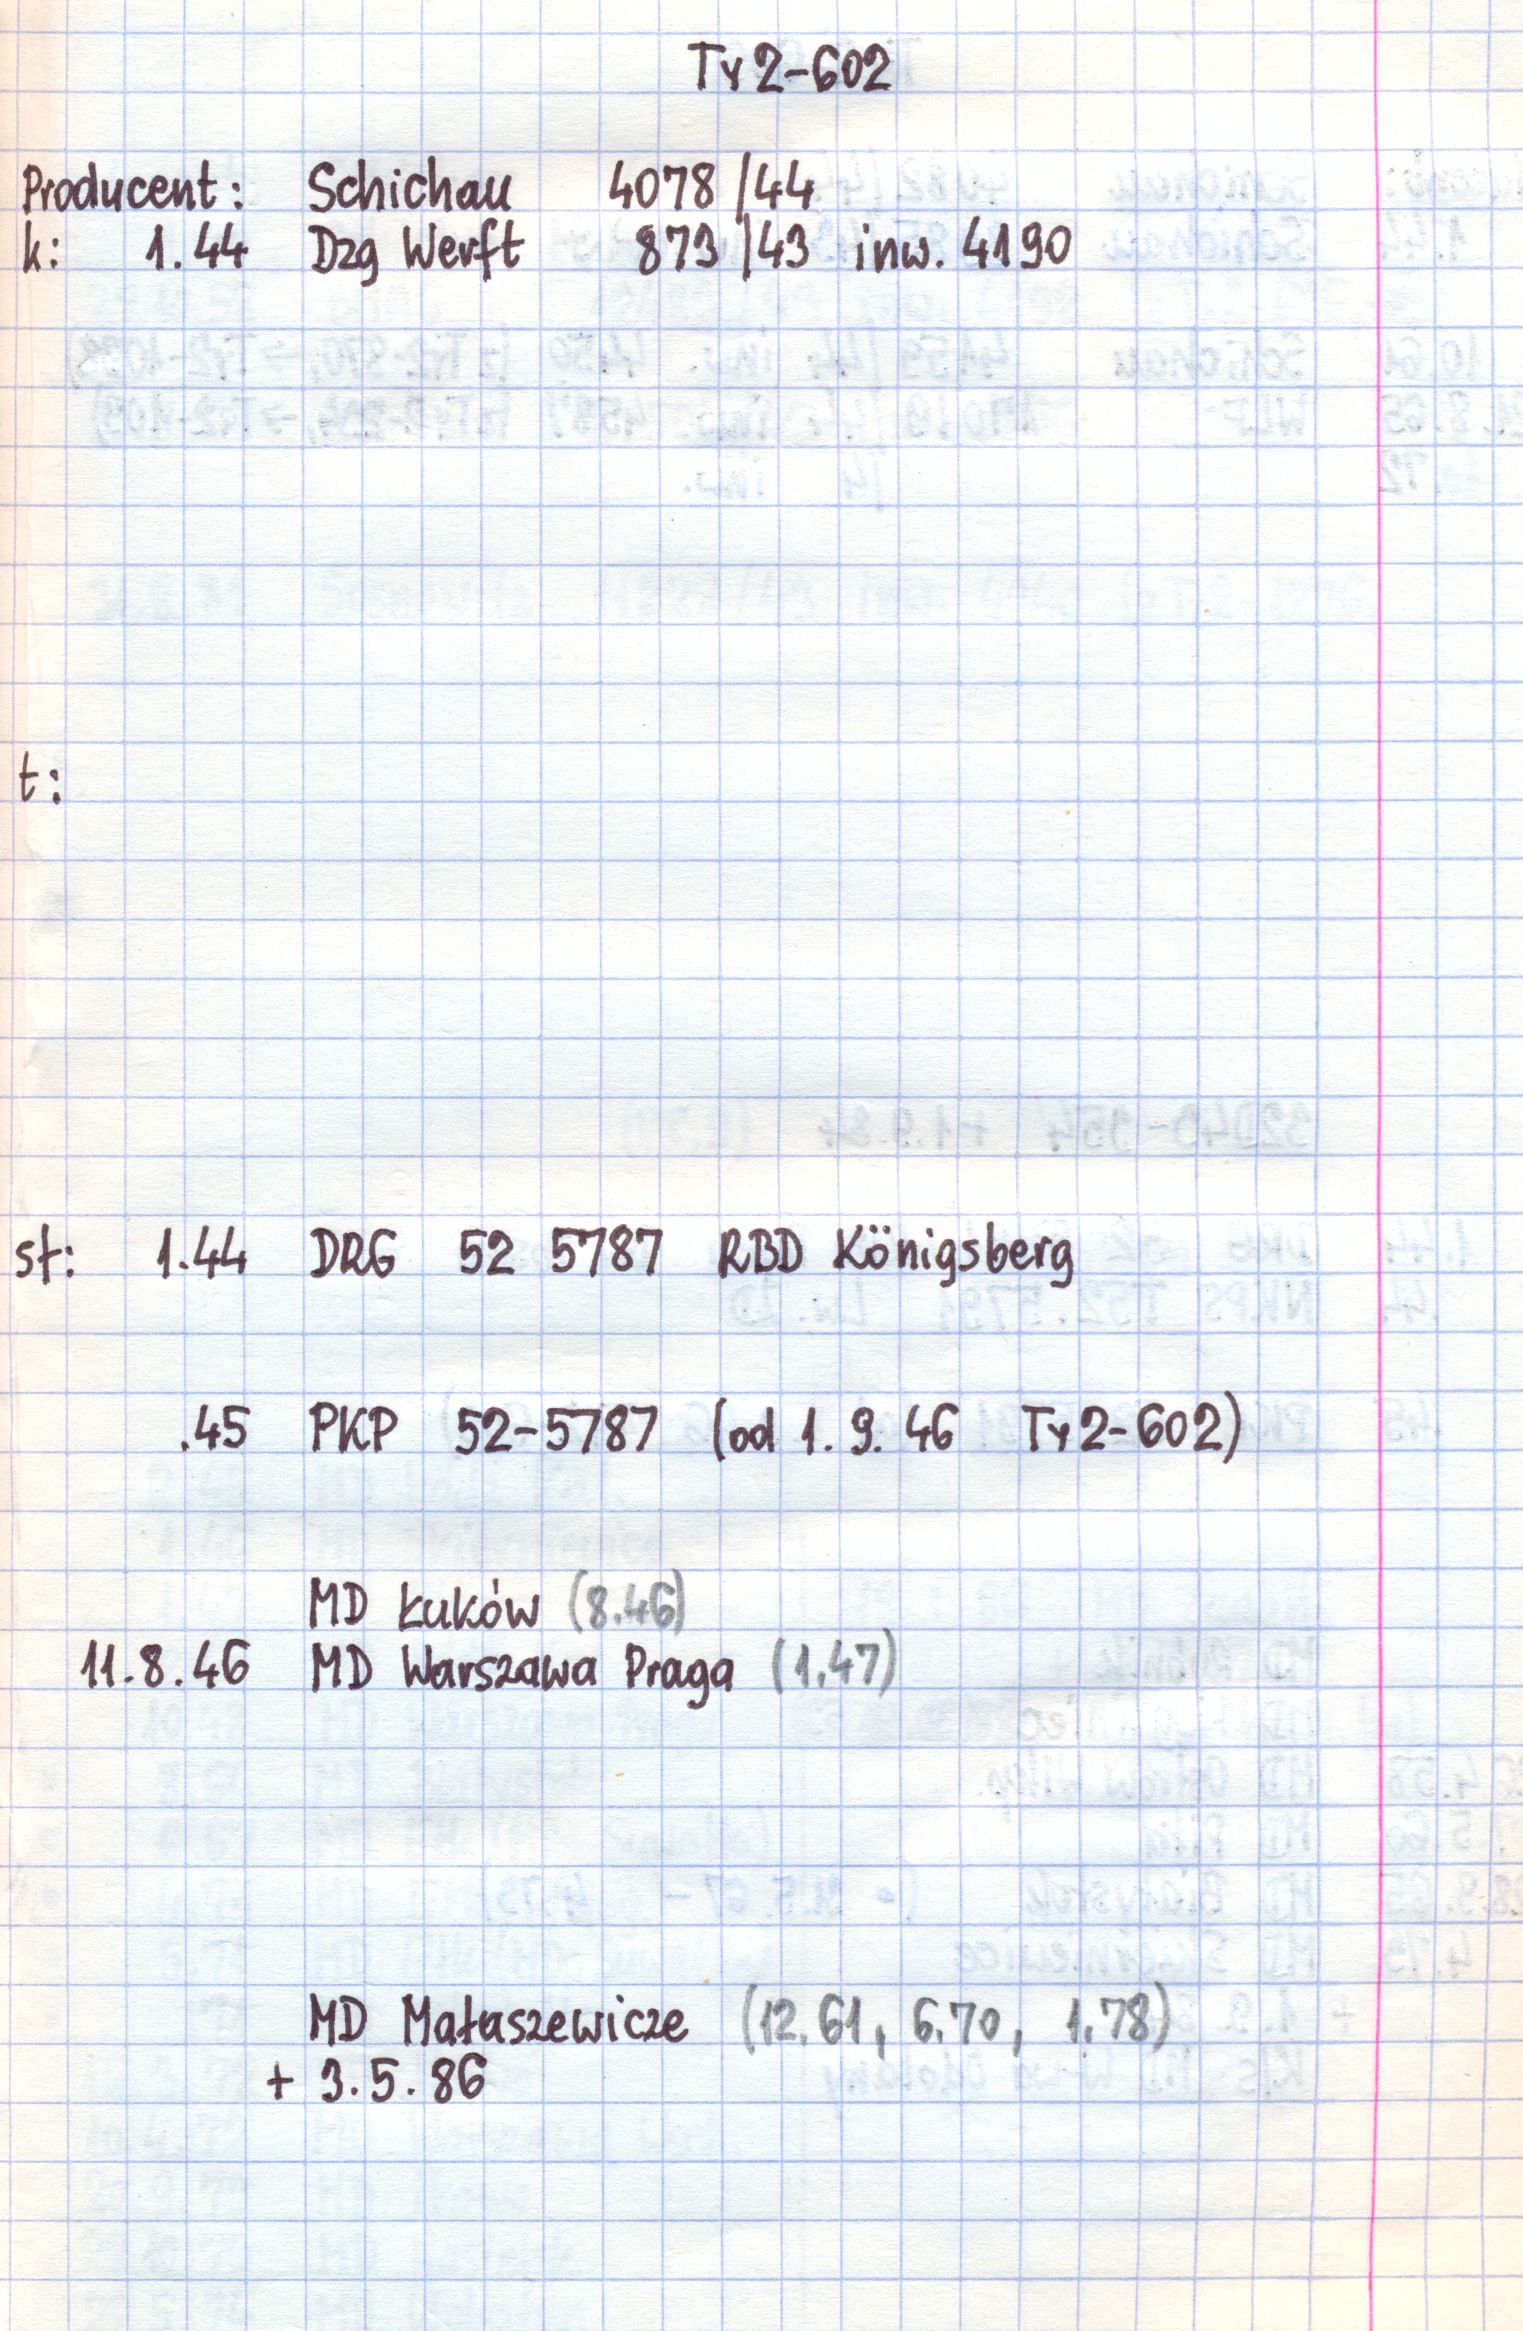 Ty2-602
Producent: Schichau 4078/44
k: 1.44 Dzg Werft 873/43 inw. 4190
t:
st: 1.44 DRG 52 5787 RBD Königsberg
.45 PKP 52-5787 (od 1.9.46 Ty2-602)
MD Łuków (8.46)
11.8.46 MD Warszawa Praga (1.47)
MD Małaszewicze (12.61, 6.70, 1.78)
+ 3.5.86